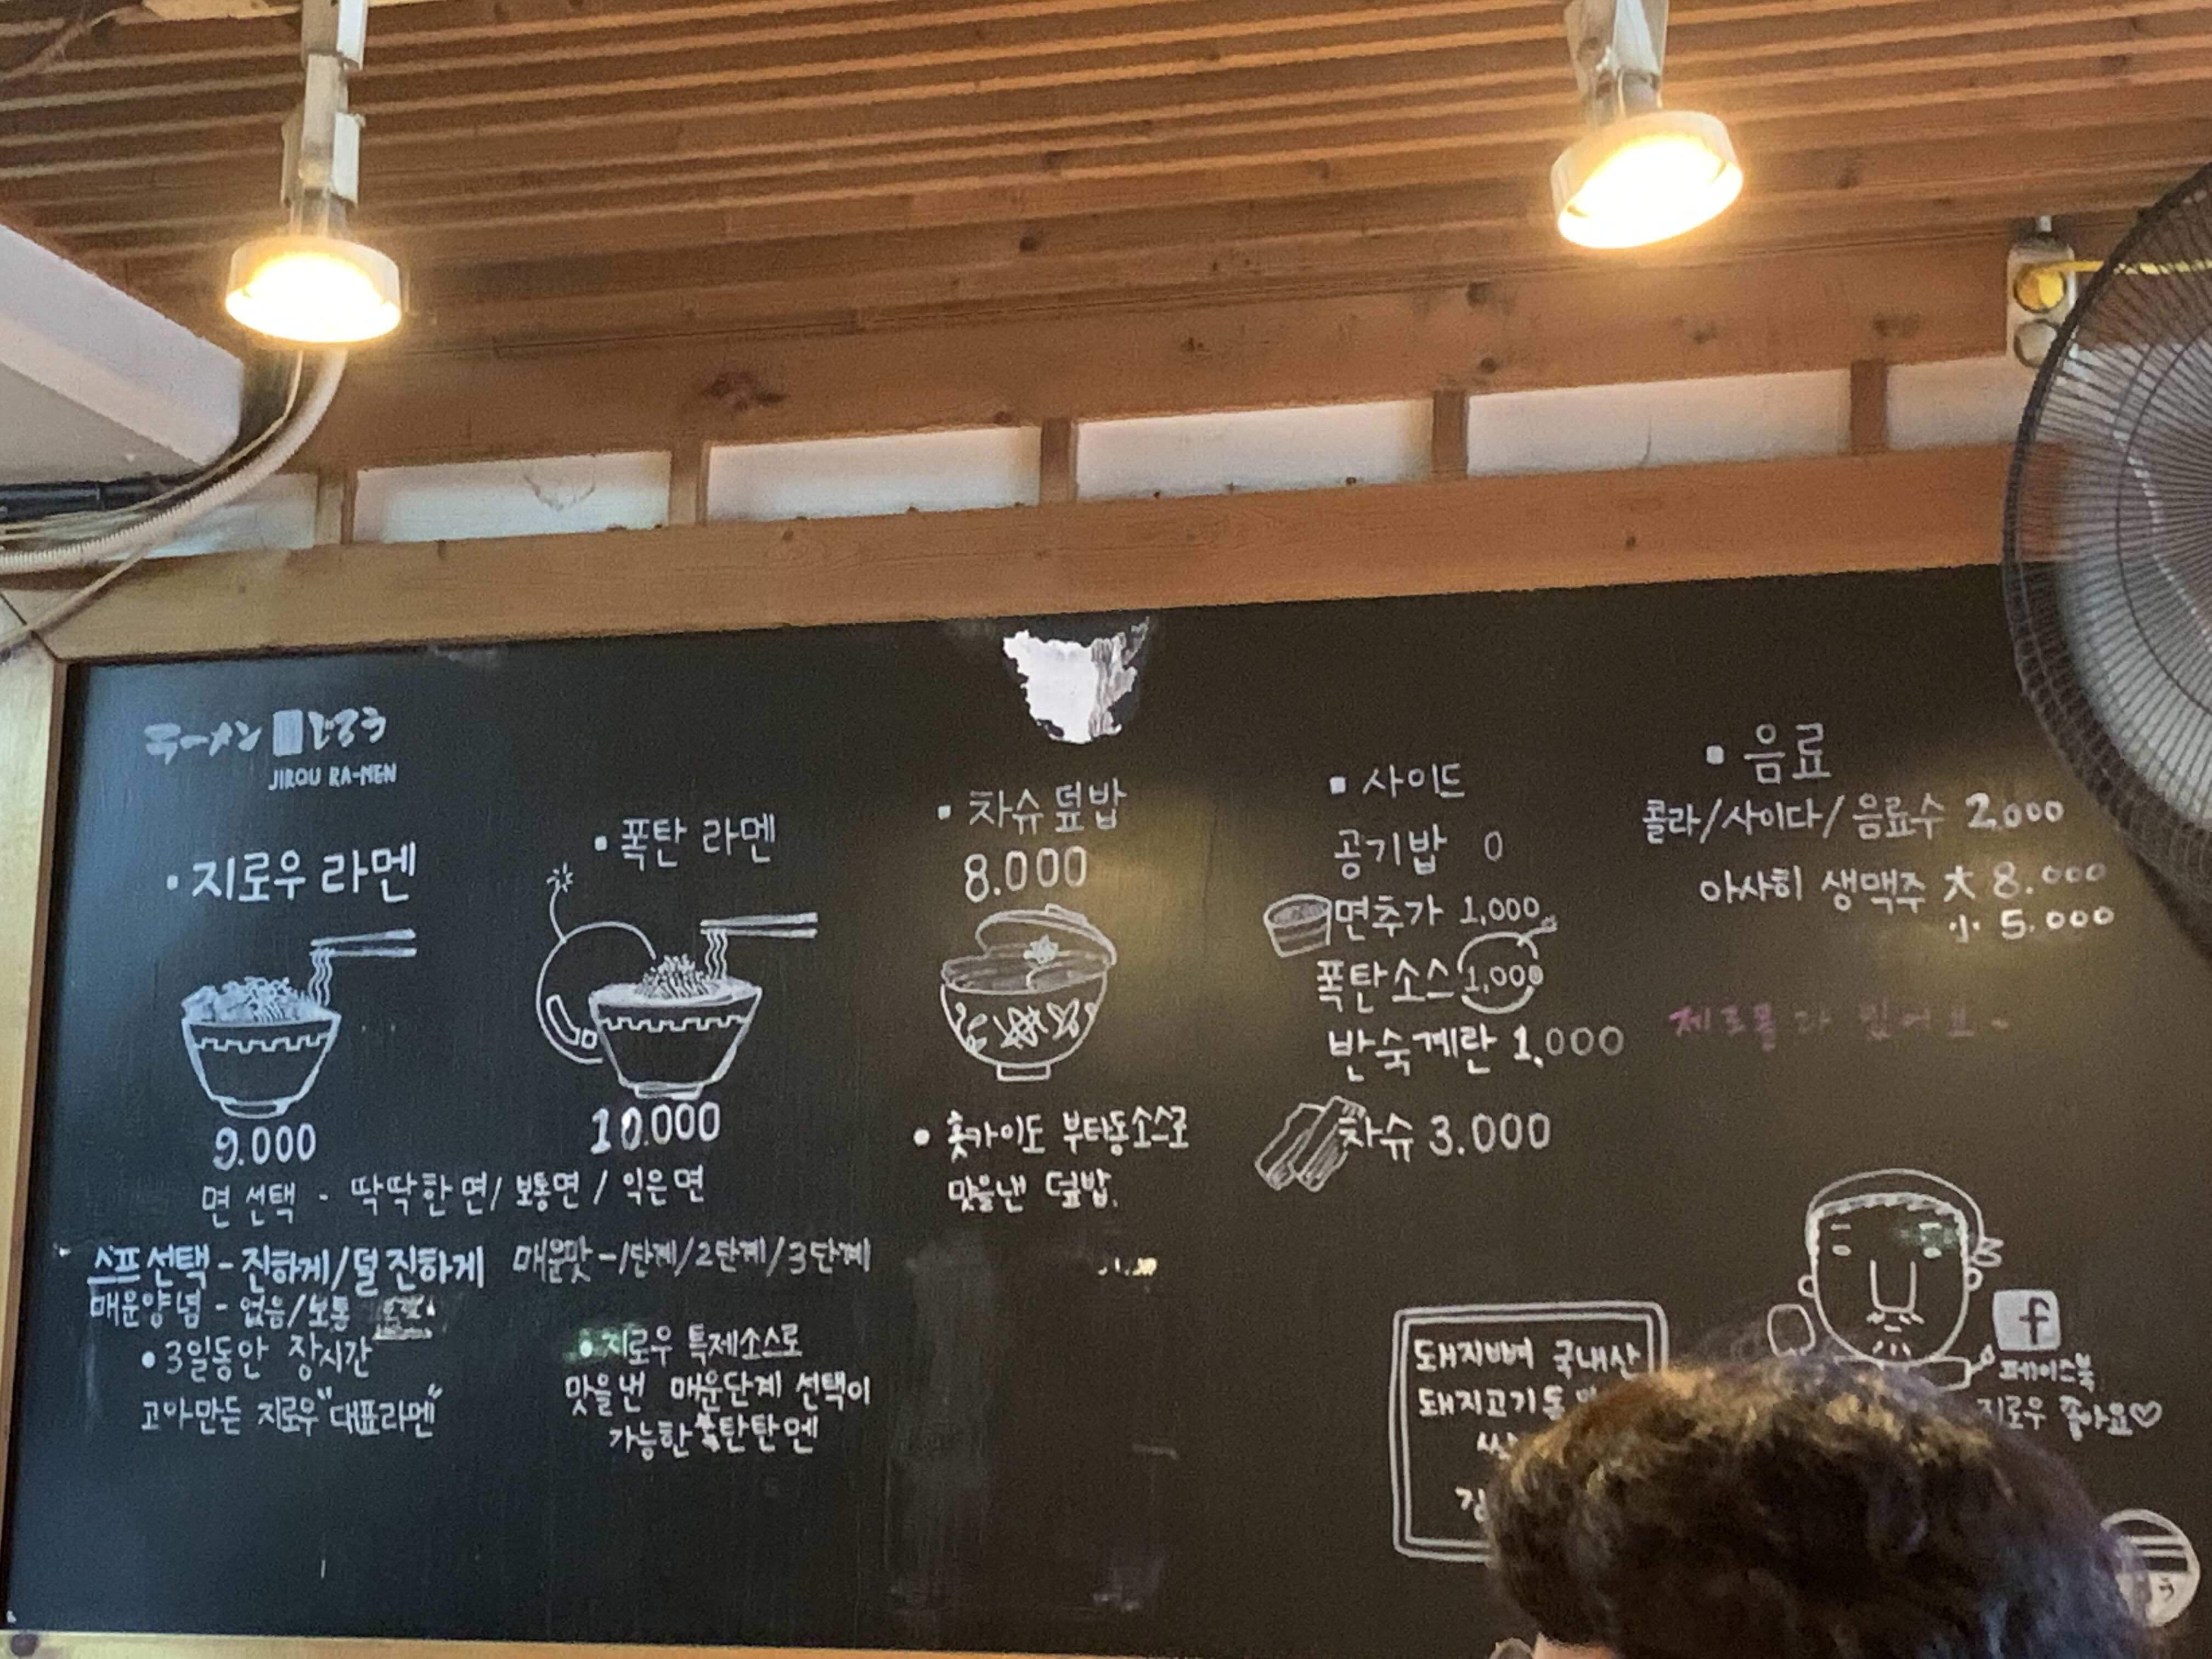 ラーメン じろう
JIROU RA-MEN
· 지로우 라멘
9.000
· 폭탄 라멘
10.000
면 선택 - 딱딱한면/보통면/익은면
스프선택-진하게/덜 진하게
매운양념 - 없음/보통
• 3일동안 장시간
고아만든 지로우 "대표라멘"
매운맛-1단계/2단계/3단계
• 지로우 특제소스로
맛을낸 매운단계 선택이
가능한 탄탄멘
· 차슈덮밥
8.000
• 홋카이도 부타동소스로
맛을낸 덮밥.
· 사이드
공기밥 0
면추가 1,000
폭탄소스 1,000
반숙계란 1,000
차슈 3.000
· 음료
콜라/사이다/음료수 2,000
아사히 생맥주 大 8.000
小 5.000
제로콜라 있어요~
돼지뼈 국내산
돼지고기
f
페이스북
지로우 좋아요♡